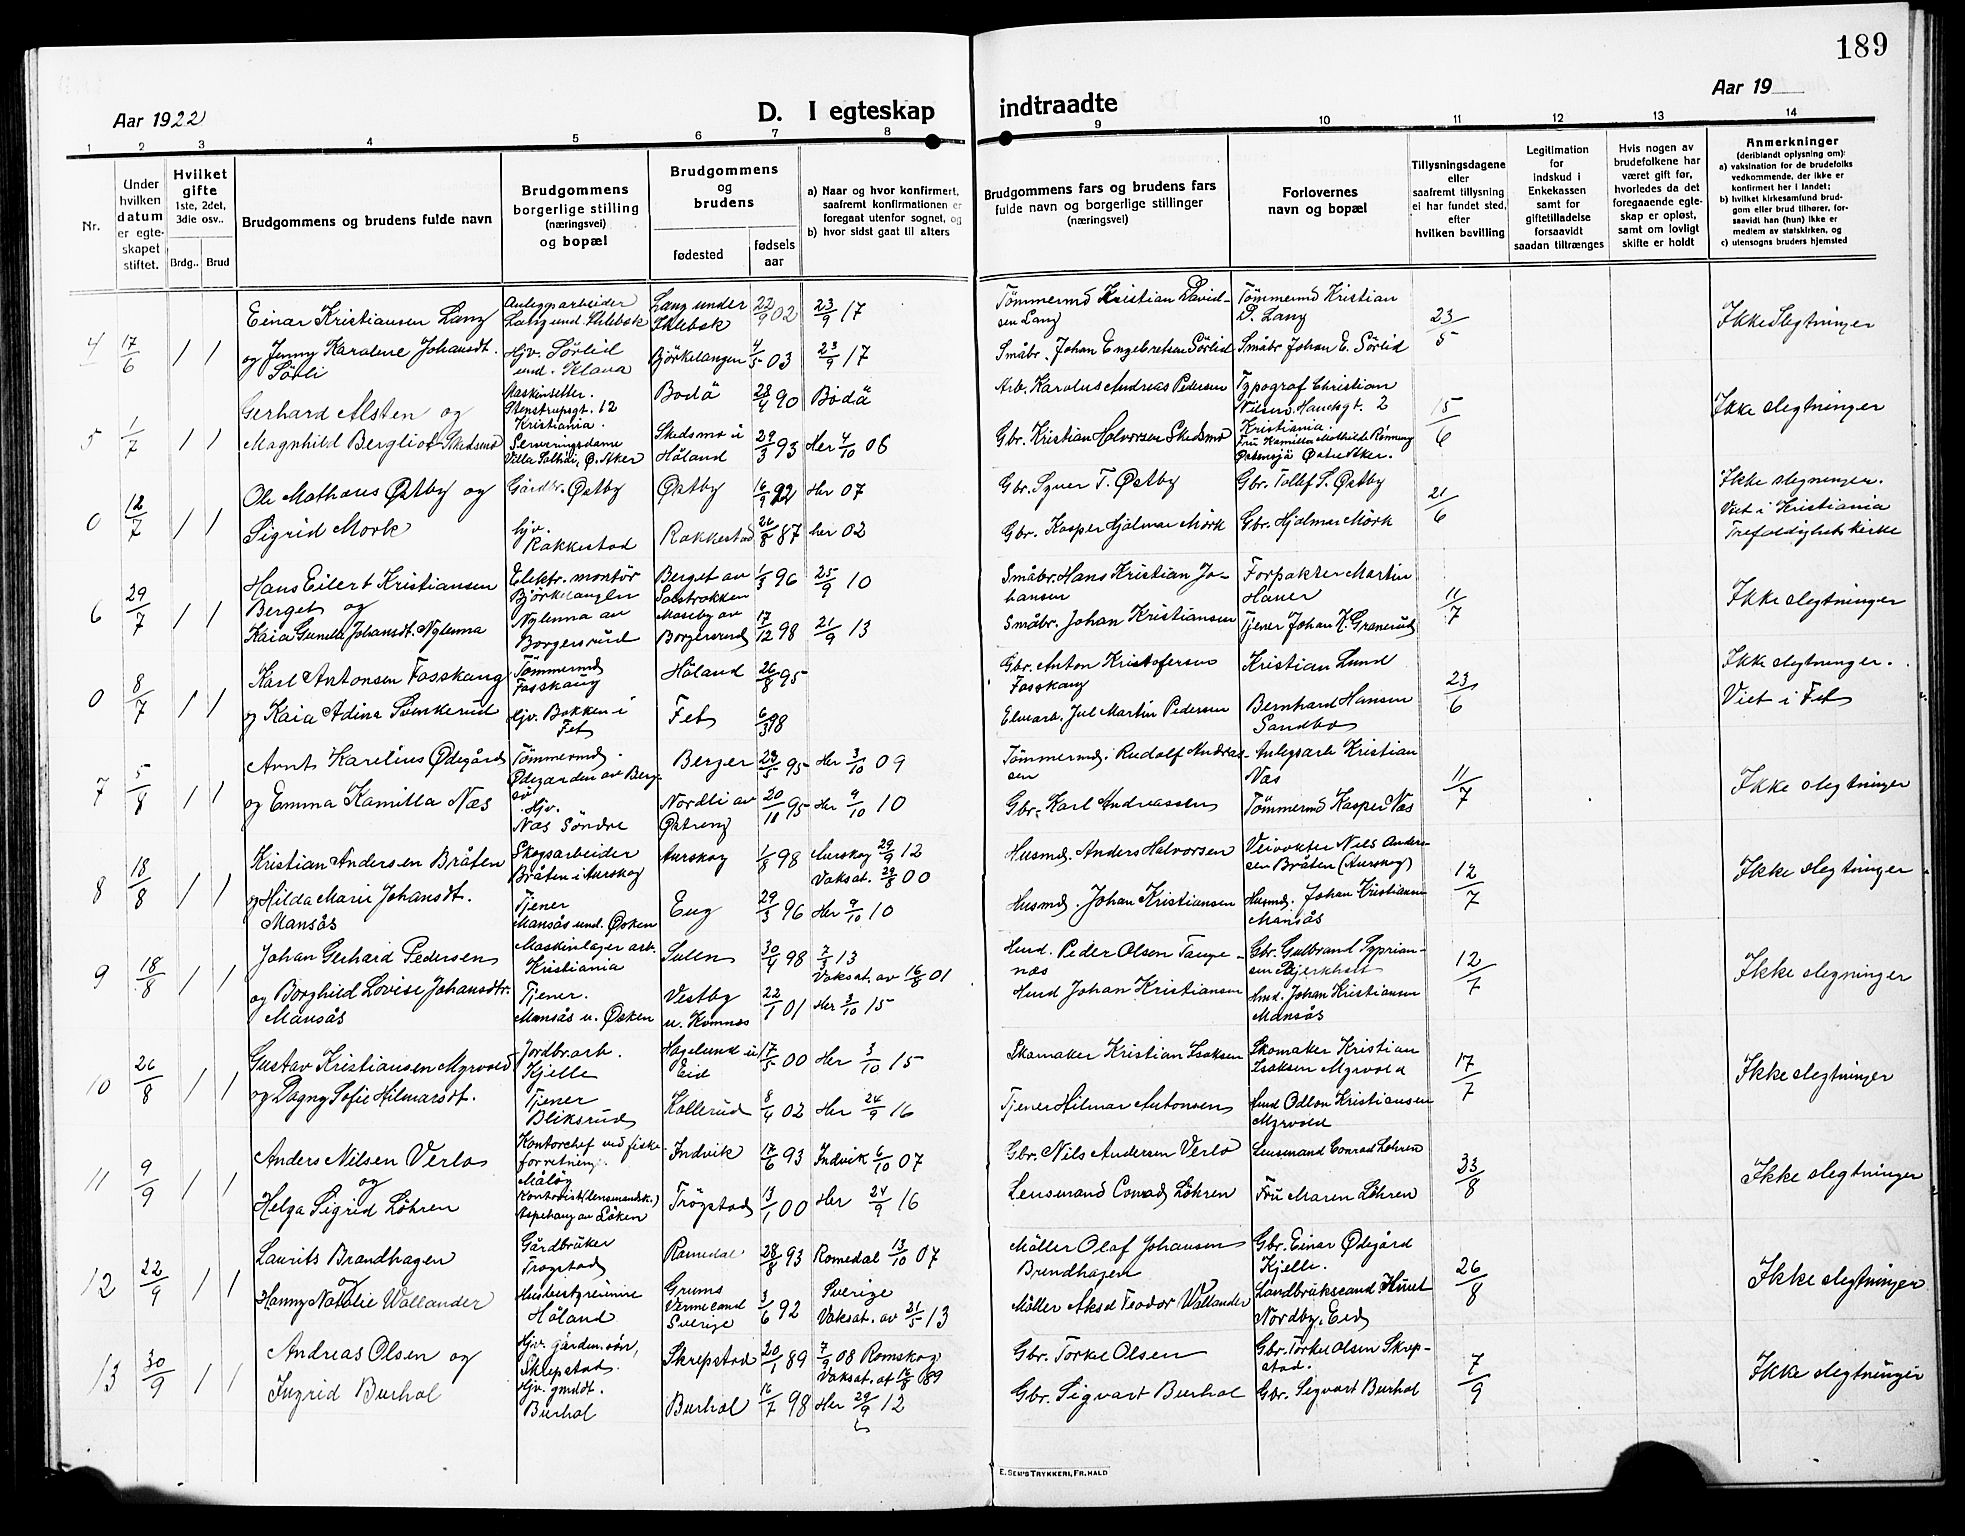 189
Aar 1922
D. I egteskap
indtraadte
Aar 19
1 2 3 4 5 6 7 8 9 10 11 12 13 14
Nr.
Under hvilken datum er egteskapet stiftet.
Hvilket gifte 1ste, 2det, 3die osv..
Brdg.. Brud
Brudgommens og brudens fulde navn
Brudgommens borgerlige stilling (næringsvei) og bopæl
Brudgommens og brudens
fødested
fødsels aar
a) Naar og hvor konfirmert, saafremt konfirmationen er foregaat utenfor sognet, og
b) hvor sidst gaat til alters
Brudgommens fars og brudens fars fulde navn og borgerlige stillinger (næringsvei)
Forlovernes navn og bopæl
Tillysningsdagene eller saafremt tillysning ei har fundet sted, efter hvilken bevilling
Legitimation for indskud i Enkekassen samt for giftetilladelse forsaavidt saadan tiltrænges
Hvis nogen av brudefolkene har været gift før, hvorledes da det foregaaende egteskap er opløst, samt om lovligt skifte er holdt
Anmerkninger
(deriblandt oplysning om):
a) vaksination for de brudefolks vedkommende, der ikke er konfirmert her i landet;
b) hvilket kirkesamfund brudgom eller brud tilhører, forsaavidt han (hun) ikke er medlem av statskirken, og
c) utensogns bruders hjemsted
4 17/6 1 1
Einar Kristiansen Lang
og Jenny Karoline Johansdt.
Sörli
Anlegsarbeider
Lang und.
Hjv. Sörlid
und. Klava
Lang under
Björkelangen
22/9 02 23/9 17
4/5 03 23/9 17
Tömmermd Kristian David-
sen Lang
Småbr. Johan Engebretsen Sörlid
Tömmermd Kristian
D. Lang
Småbr Johan E. Sörlid
23/5
Ikke Slegtninger
5 1/7 1 1
Gerhard Alsten og
Magnhild Bergliot Skedsmo
Maskinsetter.
Stenstrupsgt. 12
Kristiania.
Serveringsdame
Villa Solhöi, Ø. Aker
Bodö 28/4 90 Bodö
Skedsmo i
Höland 29/3 93 Her 4/10 08
Arb. Karolus Andreas Pedersen
Gbr. Kristian Halvorsen Skedsmo
Typograf Christian
Nilsen Hauchsgt. 2
Kristiania.
Fru Kamilla Mathilde Rönning
Østensjö Østre Aker.
15/6
Ikke slegtninger
0 12/7 1 1
Ole Mathæus Østby og
Sigrid Mork
Gårdbr. Østby
hjv.
Rakkestad
Østby 16/9 92 Her 07
Rakkestad 26/8 87 her 02
Gbr. Syver T. Østby
Gbr. Kasper Hjalmar Mörk
Gbr. Tollef S. Østby
Gbr. Hjalmar Mörk
21/6
Ikke slegtninger.
Viet i Kristiania
Trefoldighetskirke
6 29/7 1 1
Hans Eilert Kristiansen
Berget og
Kaia Gunilla Johansdt. Nylenna
Elektr. montör
Björkelangen
Nylenna av
Borgersrud
Berget av
Moseby av
Borgersrud
1/3 96 25/9 10
17/12 98 21/9 13
Småbr. Hans Kristian Jo-
hansen
Småbr. Johan Kristiansen
Forpakter Martin
Haner
Tjener Johan K. Granerud
11/7
Ikke slegtninger
0 8/7 1 1
Karl Antonsen Fosskaug
og Kaia Adina Svenkerud
Tömmermd
Fosskaug
Hjv. Bakken i
Fet
Höland 26/8 95
Fet 6/3 98
Gbr. Anton Kristofersen
Fosskaug
Elvearb. Jul Martin Pedersen
Kristian Lund
Bernhard Hansen
Sandbo
23/6
Ikke slegtninger.
Viet i Fet
7 5/8 1 1
Arnt Karelius Ødegård
og Emma Kamilla Næs
Tömmermd.
Ødegarden av Berg-
er
Hjv.
Næs Söndre
Berger 23/5 95 Her 3/10 09
Nordli av
Østreng 20/11 95 Her 9/10 10
Tömmermd. Rudolf Andreas-
sen
Gbr. Karl Andreassen
Anlegsarb Kristian
Næs
Tömmermd Kasper Næs
11/7
Ikke slegtninger
8 18/8 1 1
Kristian Andersen Bråten
og Hilda Marie Johansdt.
Mansås
Skogsarbeider
Bråten i Aurskog
Tjener
Mansås und. Ösken
Aurskog 1/8 98 Aurskog 29/9 12
Vaksat. 29/8 00
Eng 29/3 96 Her 9/10 10
Husmd. Anders Halvorsen
Husmd. Johan Kristiansen
Veivokter Nils Ander-
sen Bråten (Aurskog)
Husmd. Johan Kristiansen
Mansås
12/7
Ikke slegtninger
9 18/8 1 1
Johan Gerhard Pedersen
og Borghild Lovise Johansdtr.
Mansås
Maskinlager arb.
Kristiania
Tjener.
Mansås u. Ösken
Sulen 30/4 98 7/9 13
Vaksat. av 16/8 01
Vestby
u. Komnæs 22/1 01 Her 3/10 15
Hmd. Peder Olsen Tange-
næs
Hmd Johan Kristiansen
Gbr. Gulbrand Syprian-
sen Bjerkholt
Hmd. Johan Kristiansen
Mansås
12/7
Ikke slegninger
10 26/8 1 1
Gustav Kristiansen Myrvold
og Dagny Sofie Hilmarsdt.
Jordbr. arb.
Kjelle
Tjener
Bliksrud
Hagelund u
Eid 17/5 00 Her 3/10 15
Kollerud 8/4 02 Her 24/9 16
Skomaker Kristian Isaksen
Tjener Hilmar Antonsen
Skomaker Kristian
Isaksen Myrvold
Hmd Odlon Kristiansen
Myrvold
17/7
Ikke slegtninger
11 9/9 1 1
Anders Nilsen Verlo
og
Helga Sigrid Löhren
Kontorchef ved fiske-
forretning.
Målöy
Kontorist (lensmandsk.)
Aspehaug av Löken
Indvik 17/6 93 Indvik 6/10 07
Trögstad 13/1 00 Her 24/9 16
Gbr. Nils Andersen Verlo
Lensmand Conrad Löhren
Lensmand Conrad Löhren
Fru Maren Löhren
23/8
Ikke slegtninger
12 22/9 1 1
Laurits Brandhagen
og
Hanny Natalie Wallander
Gårdbruker
Trogstad
Husbestyrerinne
Höland
Romedal 28/8 93 Romedal 13/10 07
Grums
Vermeland
Sverige 3/6 92 Sverige
Vaksat. av 21/5 13
Möller Olaf Johansen
Brendhagen
Möller Aksel Teodor Wallander
Gbr. Einar Ødegård
Kjelle.
Landbrukscand Knut
Nordby, Eid
26/8
Ikke slegtninger
13 30/9 1 1
Andreas Olsen og
Ingrid Burhol
Hjv. gårdm. sön,
Skrepstad.
Hjv. gmdt.
Burhol
Skrepstad 20/1 89 7/9 08 Romskog
Vaksat. af 17/8 89
Burhol 16/7 98 Her 29/9 12
Gbr. Torkel Olsen
Gbr. Sigvart Burhol
Gbr. Torkel Olsen Skrep-
stad.
Gbr. Sigvart Burhol
7/9
Ikke slegtninger
E. SEM'S TRYKKERI, FR.HALD